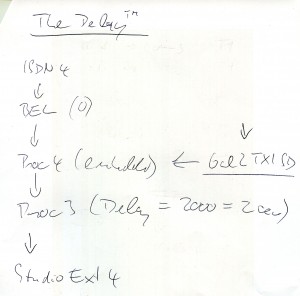 The Delay™
ISDN 4
↓
BEL (0)
↓ ↓
Proc 4 (embedded) ← Gal 2 TX1 BD
↓
Proc 3 (Delay = 2000 = 2 sec)
↓
Studio Ext 4